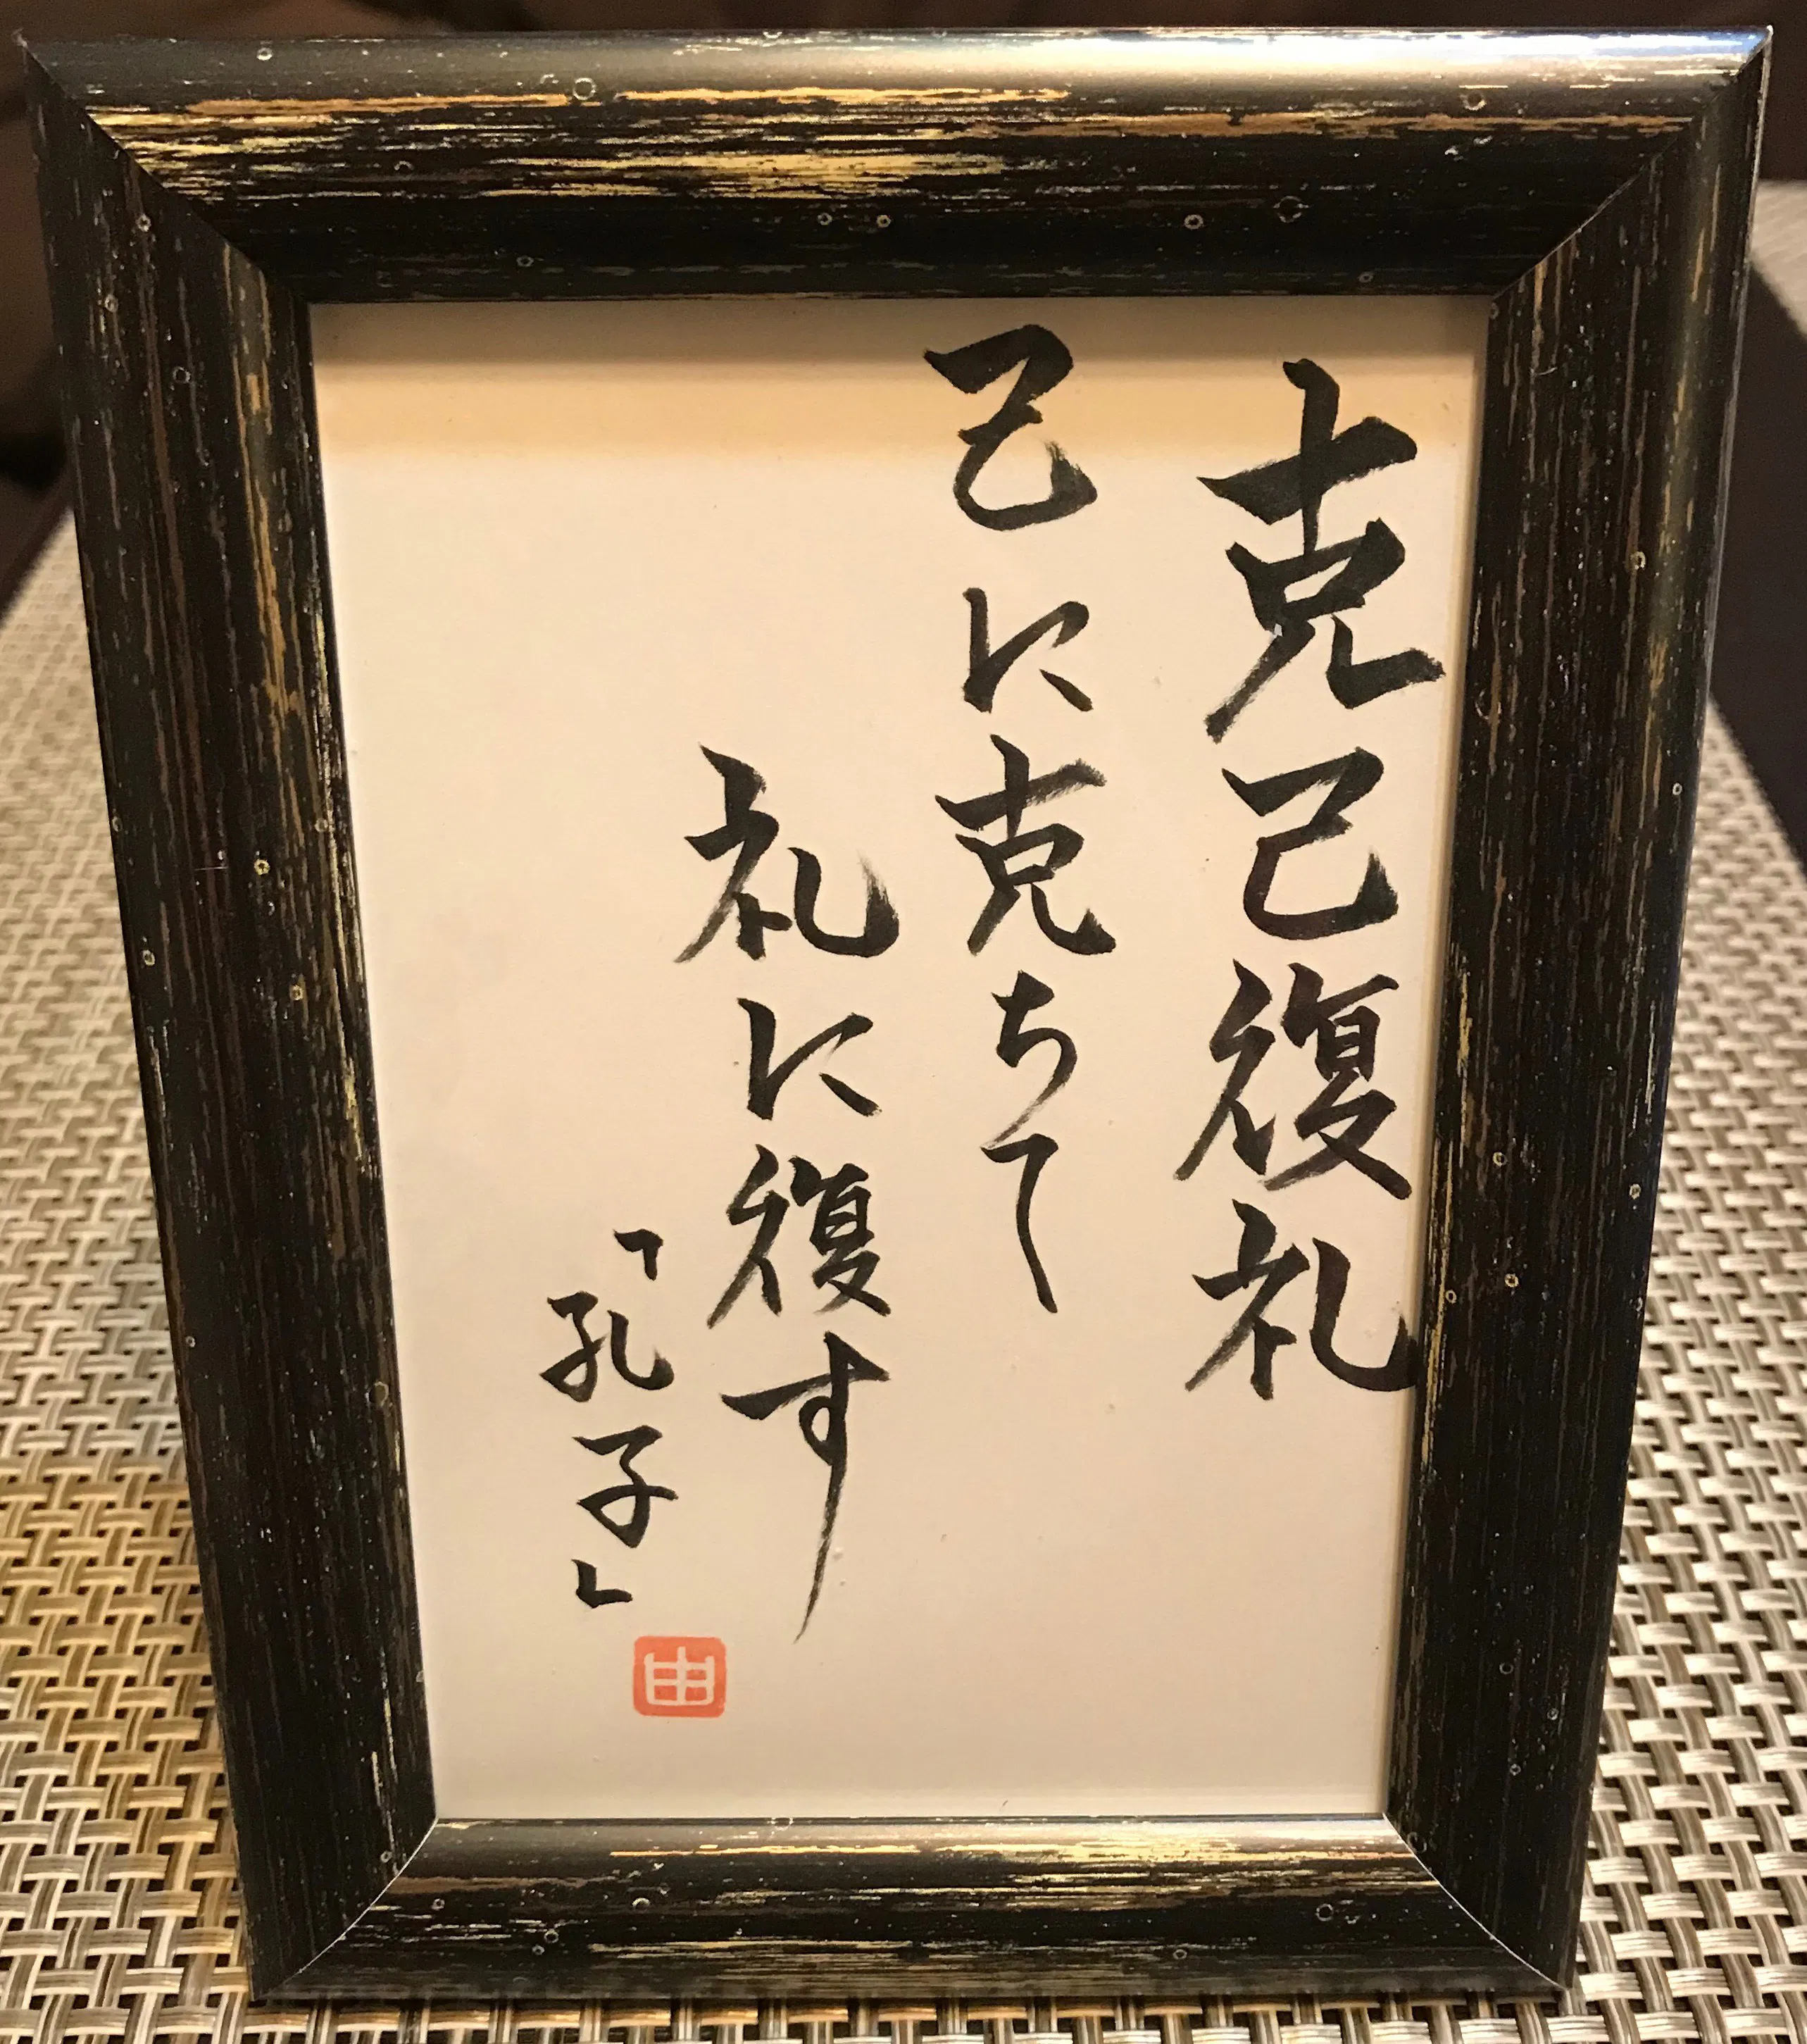 克己復礼
己に克ちて
礼に復す
「孔子」
由